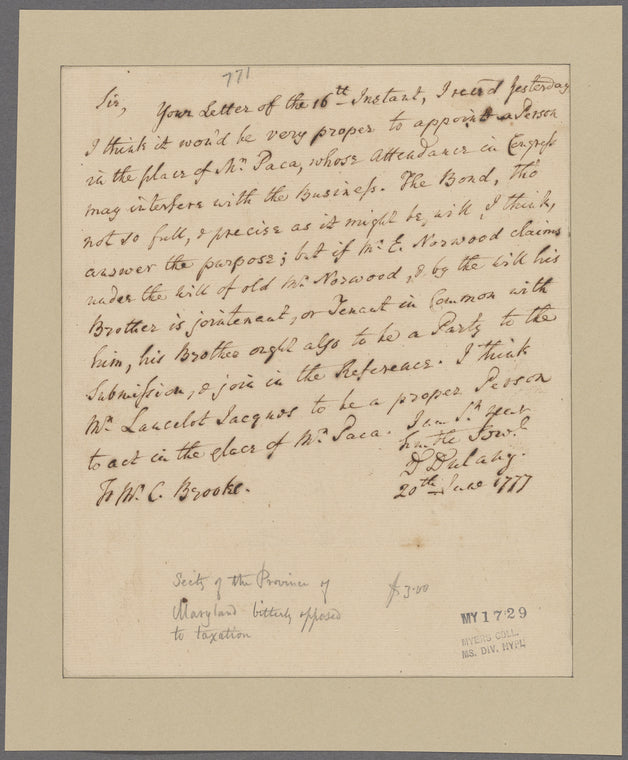 771
Sir, Your Letter of the 16th Instant, I rec'd Yesterday
I think it wou'd be very proper to appoint a Person
in the place of Mr. Paca, whose Attendance in Congress
may interfere with the Business. The Bond, tho'
not so full, & precise as it might be, will, I think,
answer the purpose; but if Mr. E. Norwood claims
under the Will of old Mr. Norwood, & by the Will his
Brother is jointenant, or Tenant in Common with
him, his Brother ought also to be a Party to the
Submission, & join in the Reference. I think
Mr. Lancelot Jacques to be a proper Person
to act in the place of Mr. Paca. I am Sr. your
humble Servt.
D Dulany.
To Mr. C. Brooke.
20th June 1777
Secty of the Province of
Maryland bitterly opposed
to taxation
$3.00
MY 1729
MYERS COLL.
MS. DIV. NYPL